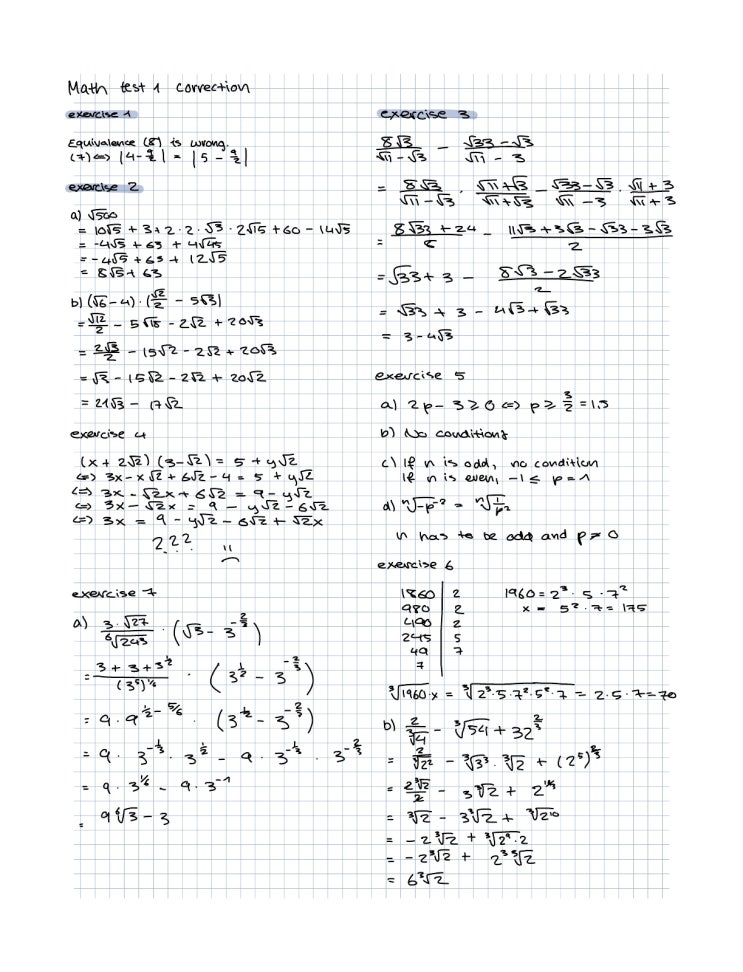 Math test 1 correction
exercise 1
Equivalence (8) is wrong.
(7) <=> |4 - 9/2| = |5 - 9/2|
exercise 2
a) √500
= 10√5 + 3 + 2 · 2 · √3 · 2√15 + 60 - 14√5
= -4√5 + 63 + 4√45
= -4√5 + 63 + 12√5
= 8√5 + 63
b) (√6 - 4) · (√2/2 - 5√3)
= √12/2 - 5√18 - 2√2 + 20√3
= 2√3/2 - 15√2 - 2√2 + 20√3
= √3 - 15√2 - 2√2 + 20√2
= 21√3 - 17√2
exercise 4
(x + 2√2)(3 - √2) = 5 + y√2
<=> 3x - x√2 + 6√2 - 4 = 5 + y√2
<=> 3x - √2x + 6√2 = 9 - y√2
<=> 3x - √2x = 9 - y√2 - 6√2
<=> 3x = 9 - y√2 - 6√2 + √2x
???
exercise 7
a) 3·√27 / ⁶√243 · (√3 - 3^(-2/3))
= 3 + 3 + 3^(1/2) / (3⁵)^(1/6) · (3^(1/2) - 3^(-2/3))
= 9 · 9^(1/2 - 5/6) · (3^(1/2) - 3^(-2/3))
= 9 · 3^(-1/3) · 3^(1/2) - 9 · 3^(-1/3) · 3^(-2/3)
= 9 · 3^(1/6) - 9 · 3^(-1)
= 9 ⁶√3 - 3
exercise 3
8√3 / (√11 - √3) - (√33 - √3) / (√11 - 3)
= 8√3 / (√11 - √3) · (√11 + √3) / (√11 + √3) - (√33 - √3) / (√11 - 3) · (√11 + 3) / (√11 + 3)
= (8√33 + 24) / 8 - (11√3 + 3√3 - √33 - 3√3) / 2
= √33 + 3 - (8√3 - 2√33) / 2
= √33 + 3 - 4√3 + √33
= 3 - 4√3
exercise 5
a) 2p - 3 ≥ 0 <=> p ≥ 3/2 = 1.5
b) No conditions
c) If n is odd, no condition
If n is even, -1 ≤ p = 1
d) ⁿ√-p⁻² = ⁿ√(1/p²)
n has to be odd and p ≠ 0
exercise 6
1860 | 2 1960 = 2³ · 5 · 7²
980 | 2 x = 5² · 7 = 175
490 | 2
245 | 5
49 | 7
7 |
³√1960·x = ³√2³·5·7²·5²·7 = 2·5·7 = 70
b) 2/³√4 - ³√54 + 32^(2/3)
= 2/³√2² - ³√3³ · ³√2 + (2⁵)^(2/3)
= 2³√2/2 - 3³√2 + 2^(10/3)
= ³√2 - 3³√2 + ³√2¹⁰
= -2³√2 + ³√2⁹·2
= -2³√2 + 2³ ³√2
= 6³√2